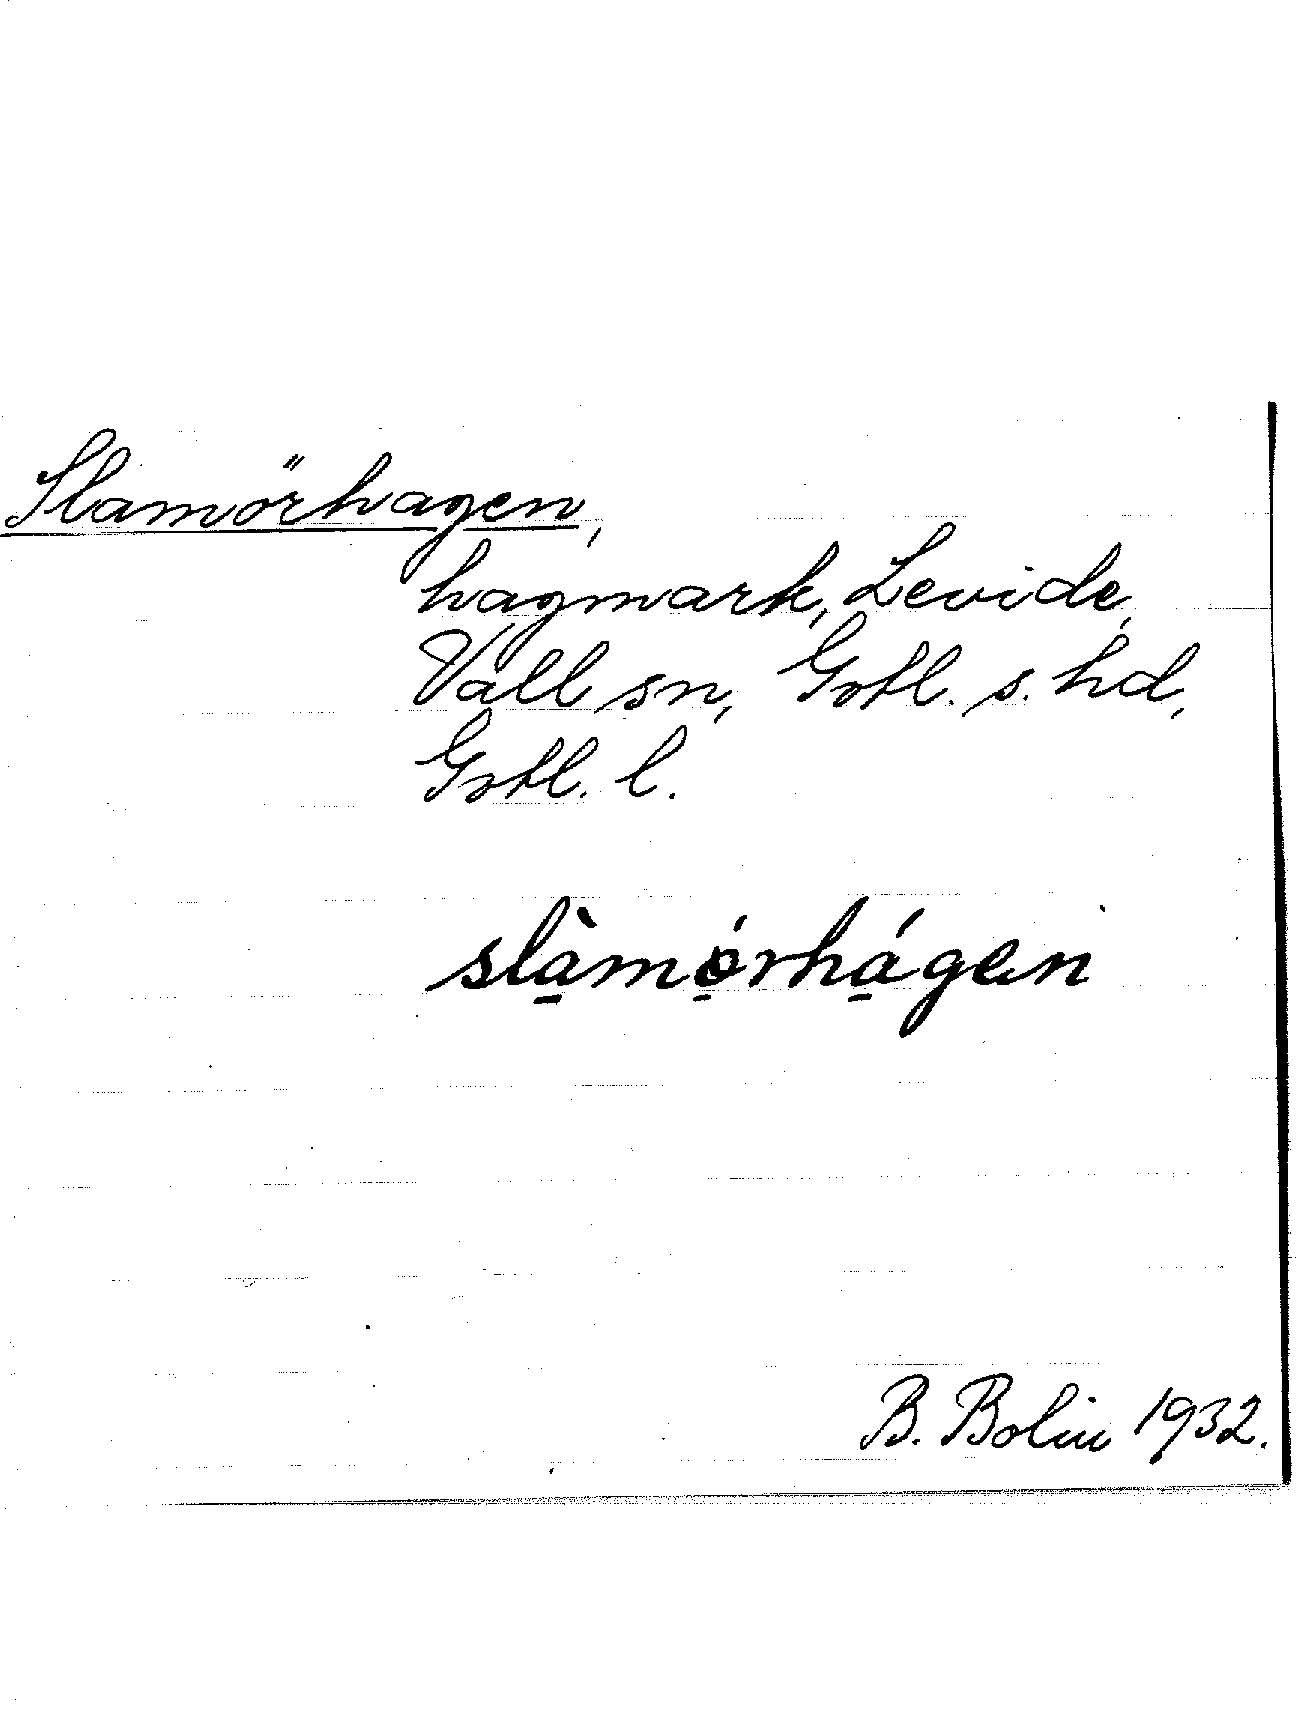 Slamörhagen,
hagmark, Levide,
Vall sn, Gotl. s. hd,
Gotl. l.
slàmórhágen
B. Bolin 1932.